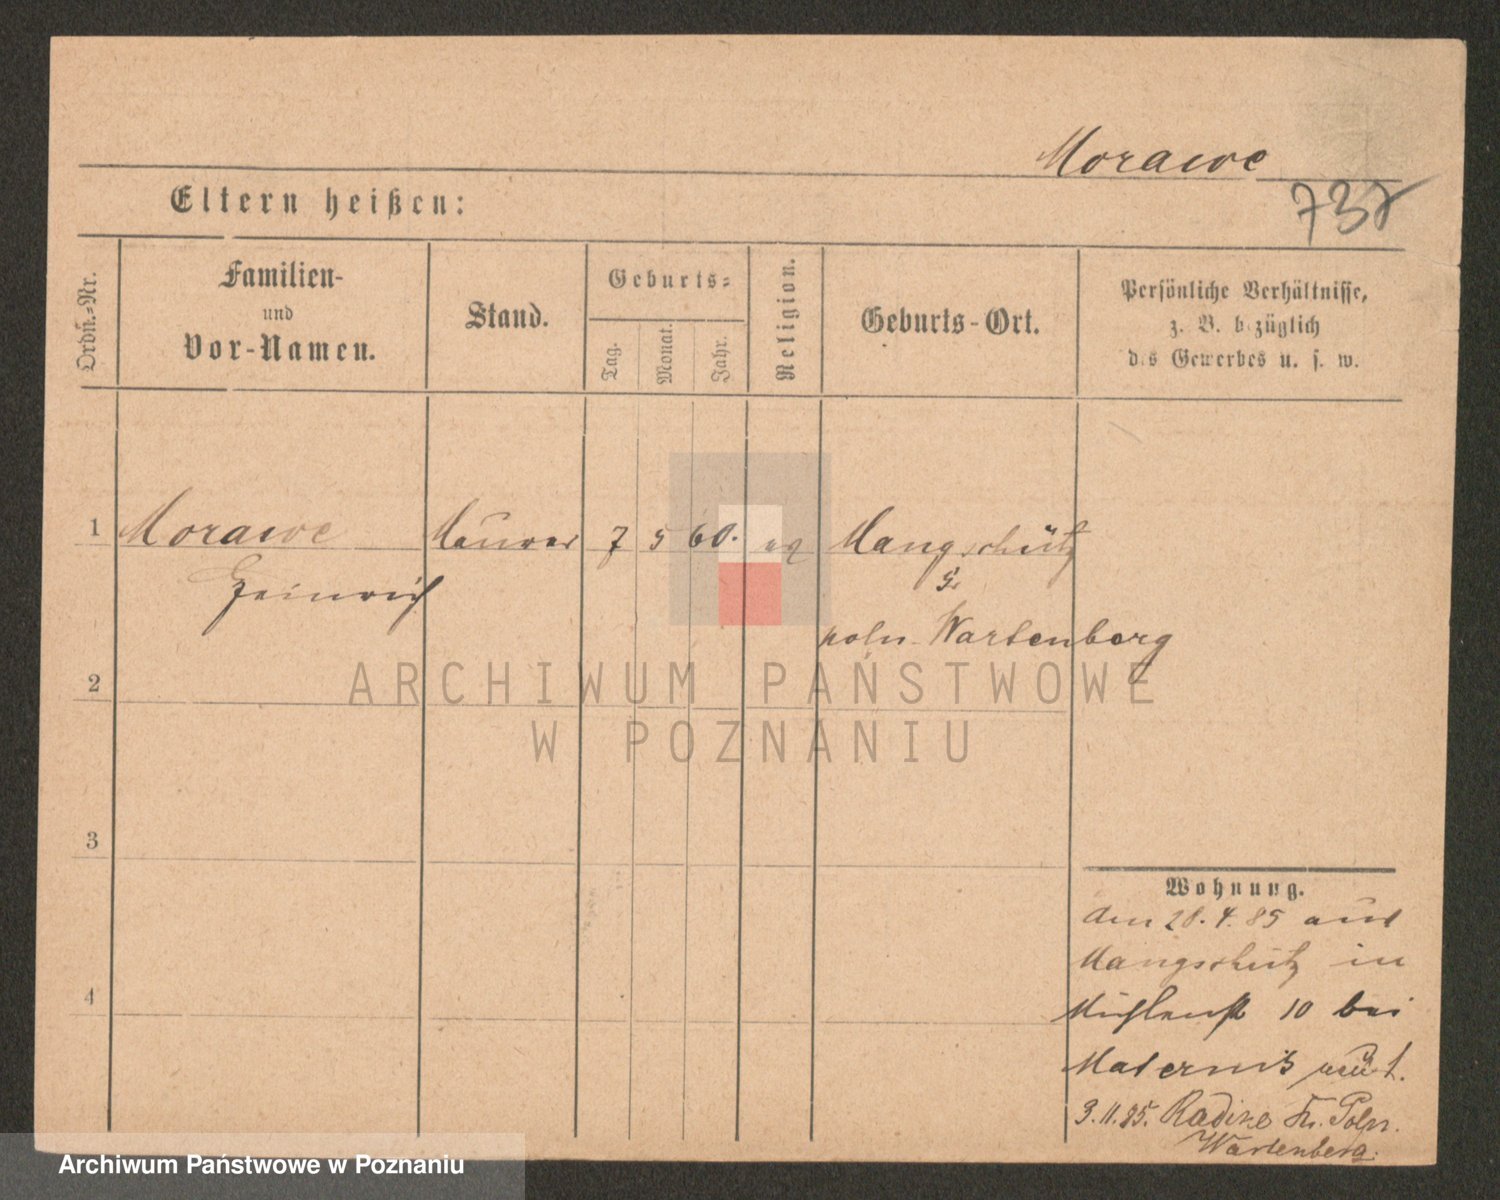 Morawe
737
Eltern heißen:
Ordn.-Nr.
Familien-
und
Vor-Namen.
Stand.
Geburts-
Tag.
Monat.
Jahr.
Religion.
Geburts-Ort.
Persönliche Verhältnisse,
z. B. bezüglich
des Gewerbes u. s. w.
1 Morawe Maurer 7 5 60. eg Mangschütz
Heinrich
poln. Wartenberg
2
ARCHIWUM PAŃSTWOWE
W POZNANIU
3
4
Wohnung.
den 28.4.85 aus
Mangschütz in
Mühlenst 10 bei
Materni
3.11.85. Radine Kr. Poln.
Wartenberg.
Archiwum Państwowe w Poznaniu